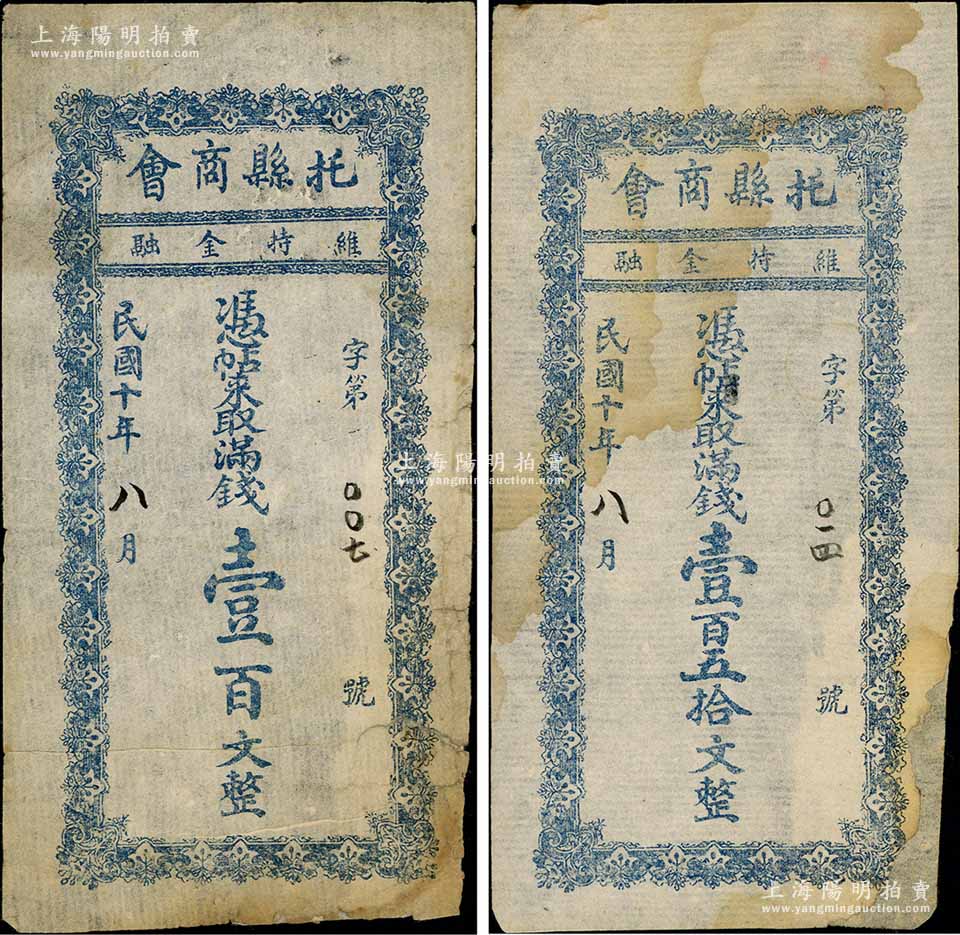 上海陽明拍賣
www.yangmingauction.com
托縣商會
維持金融
字第
〇〇七
號
憑帖來取滿錢壹百文整
民國十年八月
上海陽明拍賣
www.yangmingauction.com
托縣商會
維持金融
字第
〇一四
號
憑帖來取滿錢壹百五拾文整
民國十年八月
上海陽明拍賣
www.yangmingauction.com